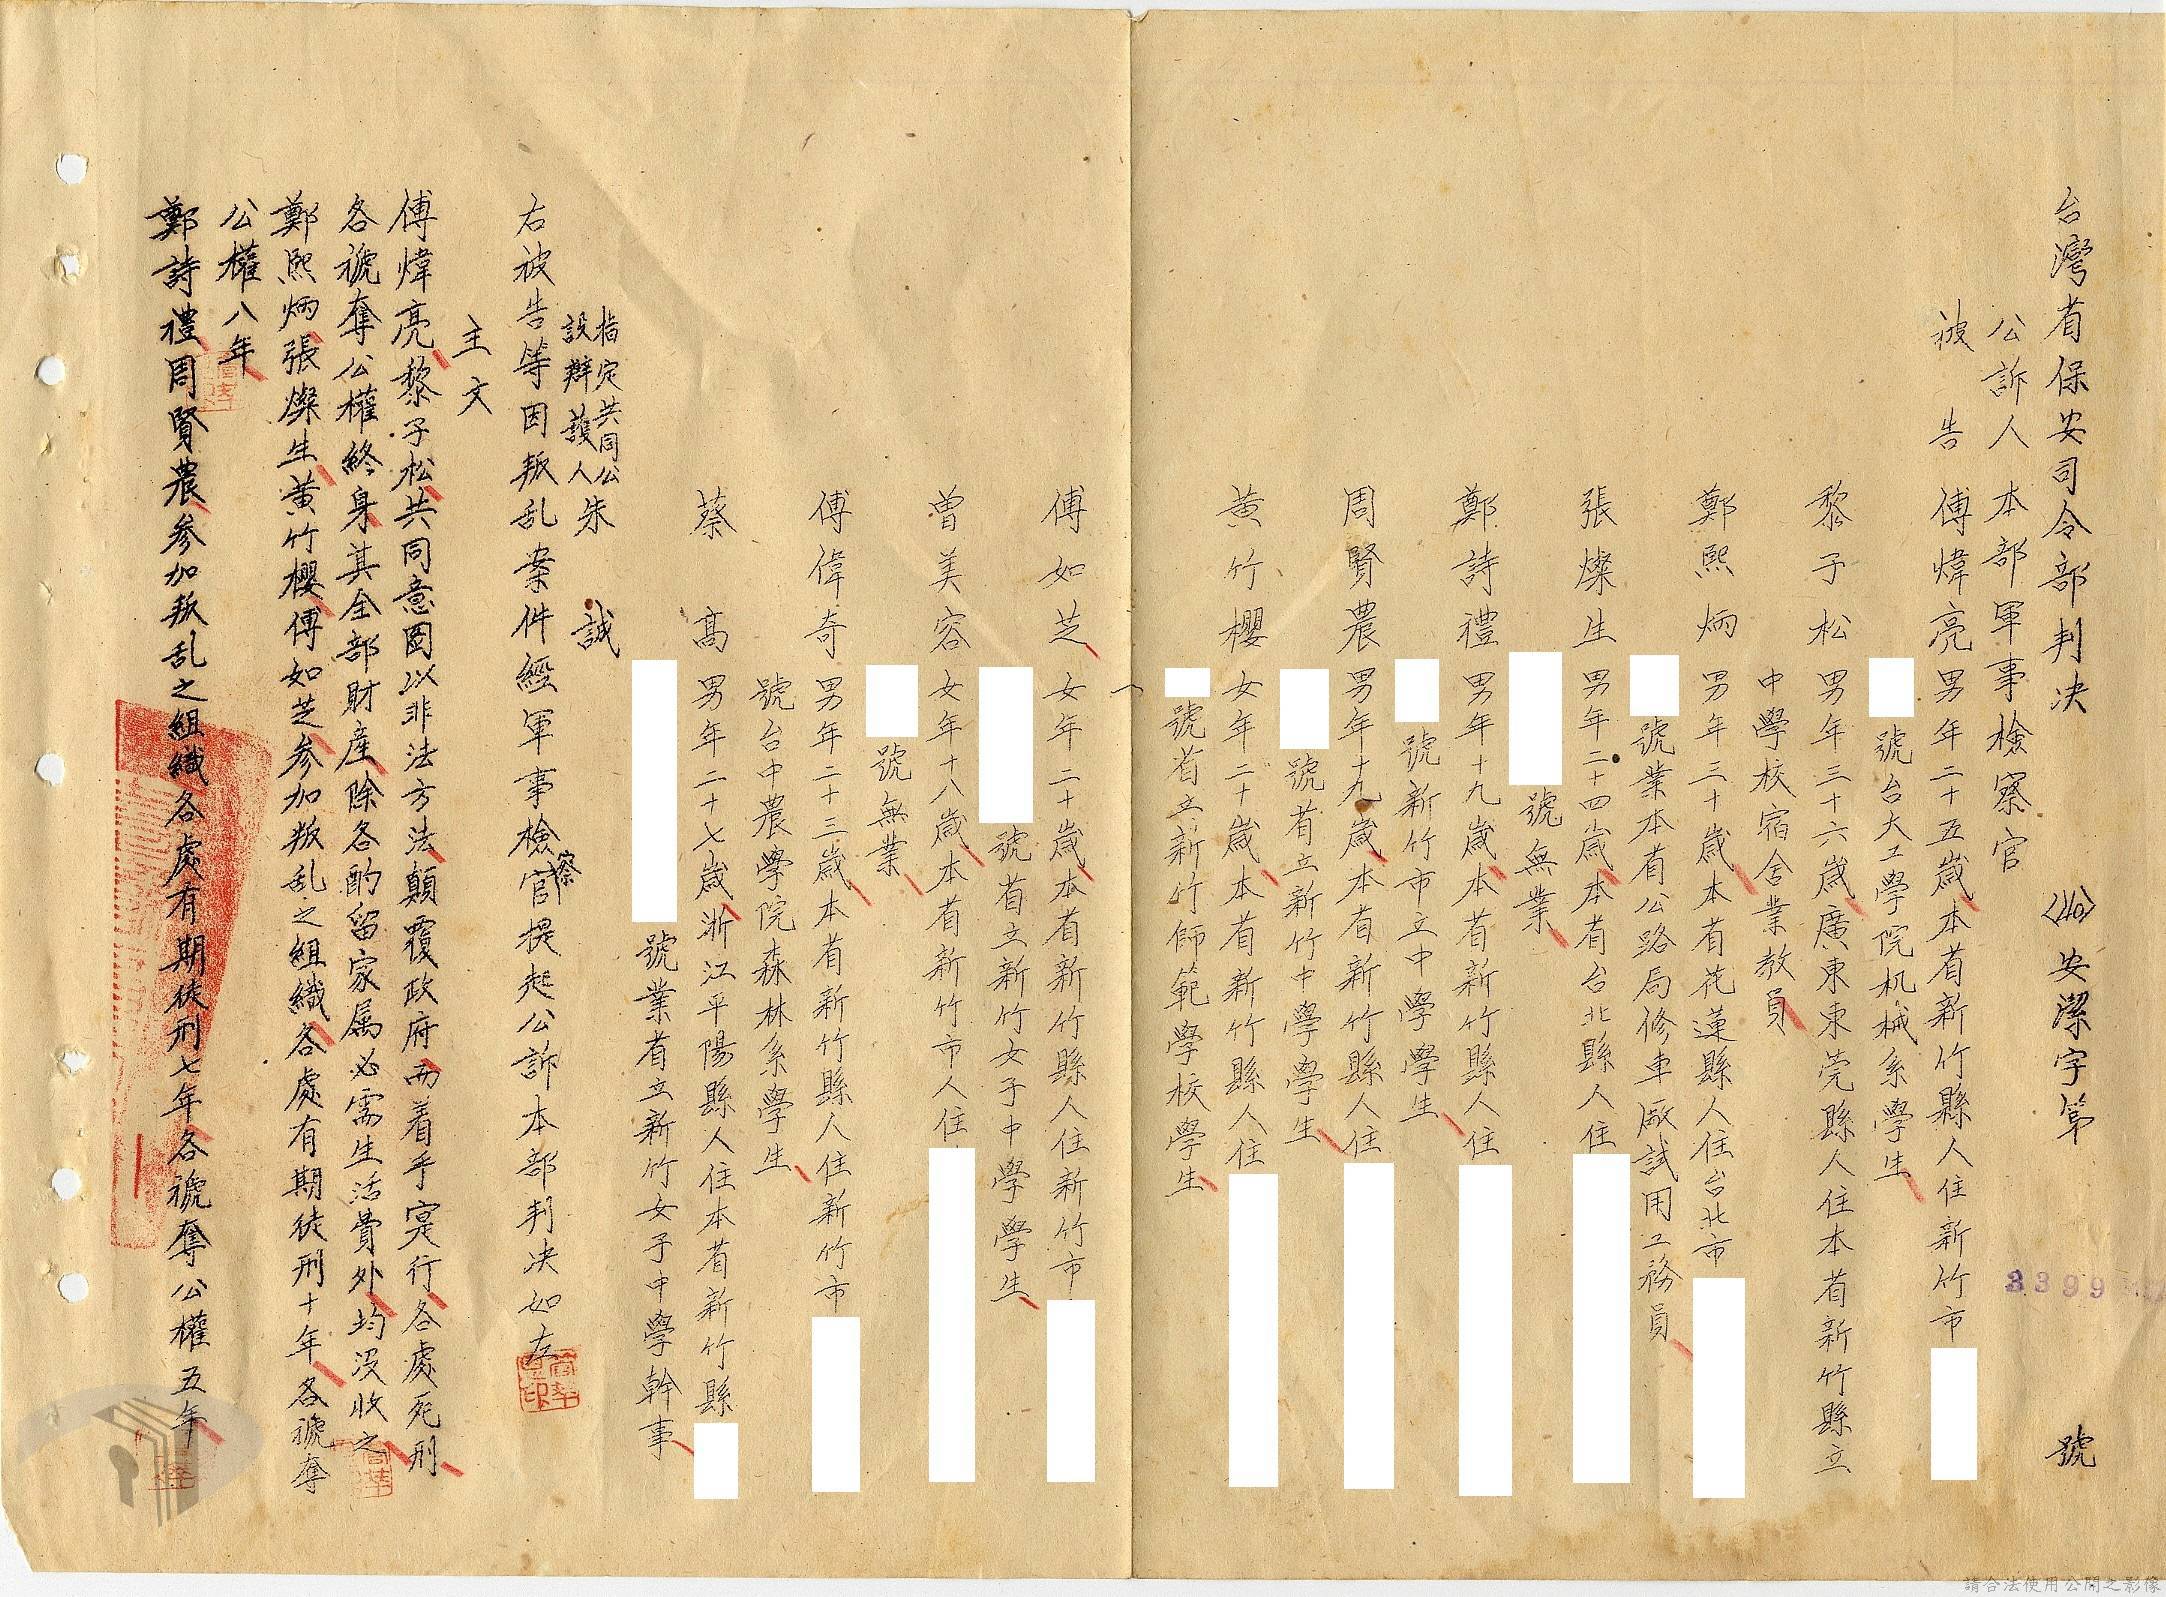 台灣省保安司令部判决
(40)安潔字第　　　號
3399
公訴人 本部軍事檢察官
被告 傅煒亮 男年二十五歲本省新竹縣人住新竹市
號台大工學院机械系學生
黎子松 男年三十六歲廣東東莞縣人住本省新竹縣立
中學校宿舍業教員
鄭熙炳 男年三十歲本省花蓮縣人住台北市
號業本省公路局修車廠試用工務員
張燦生 男年二十四歲本省台北縣人住
號無業
鄭詩禮 男年十九歲本省新竹縣人住
號新竹市立中學學生
周賢農 男年十九歲本省新竹縣人住
號省立新竹中學學生
黃竹櫻 女年二十歲本省新竹縣人住
號省立新竹師範學校學生
一
傅如芝 女年二十歲本省新竹縣人住新竹市
號省立新竹女子中學學生
曾美容 女年十八歲本省新竹市人住
號無業
傅偉奇 男年二十三歲本省新竹縣人住新竹市
號台中農學院森林系學生
蔡　高 男年二十七歲浙江平陽縣人住本省新竹縣
號業省立新竹女子中學幹事
指定共同公
設辯護人 朱　誠
右被告等因叛乱案件經軍事檢察官提起公訴本部判决如左
主文
傅煒亮黎子松共同意圖以非法方法顛覆政府而着手实行各處死刑
各褫奪公權終身其全部財產除各酌留家属必需生活費外均沒收之
鄭熙炳張燦生黃竹櫻傅如芝參加叛乱之組織各處有期徒刑十年各褫奪
公權八年
鄭詩禮周賢農參加叛乱之組織各處有期徒刑七年各褫奪公權五年
請合法使用公開之影像